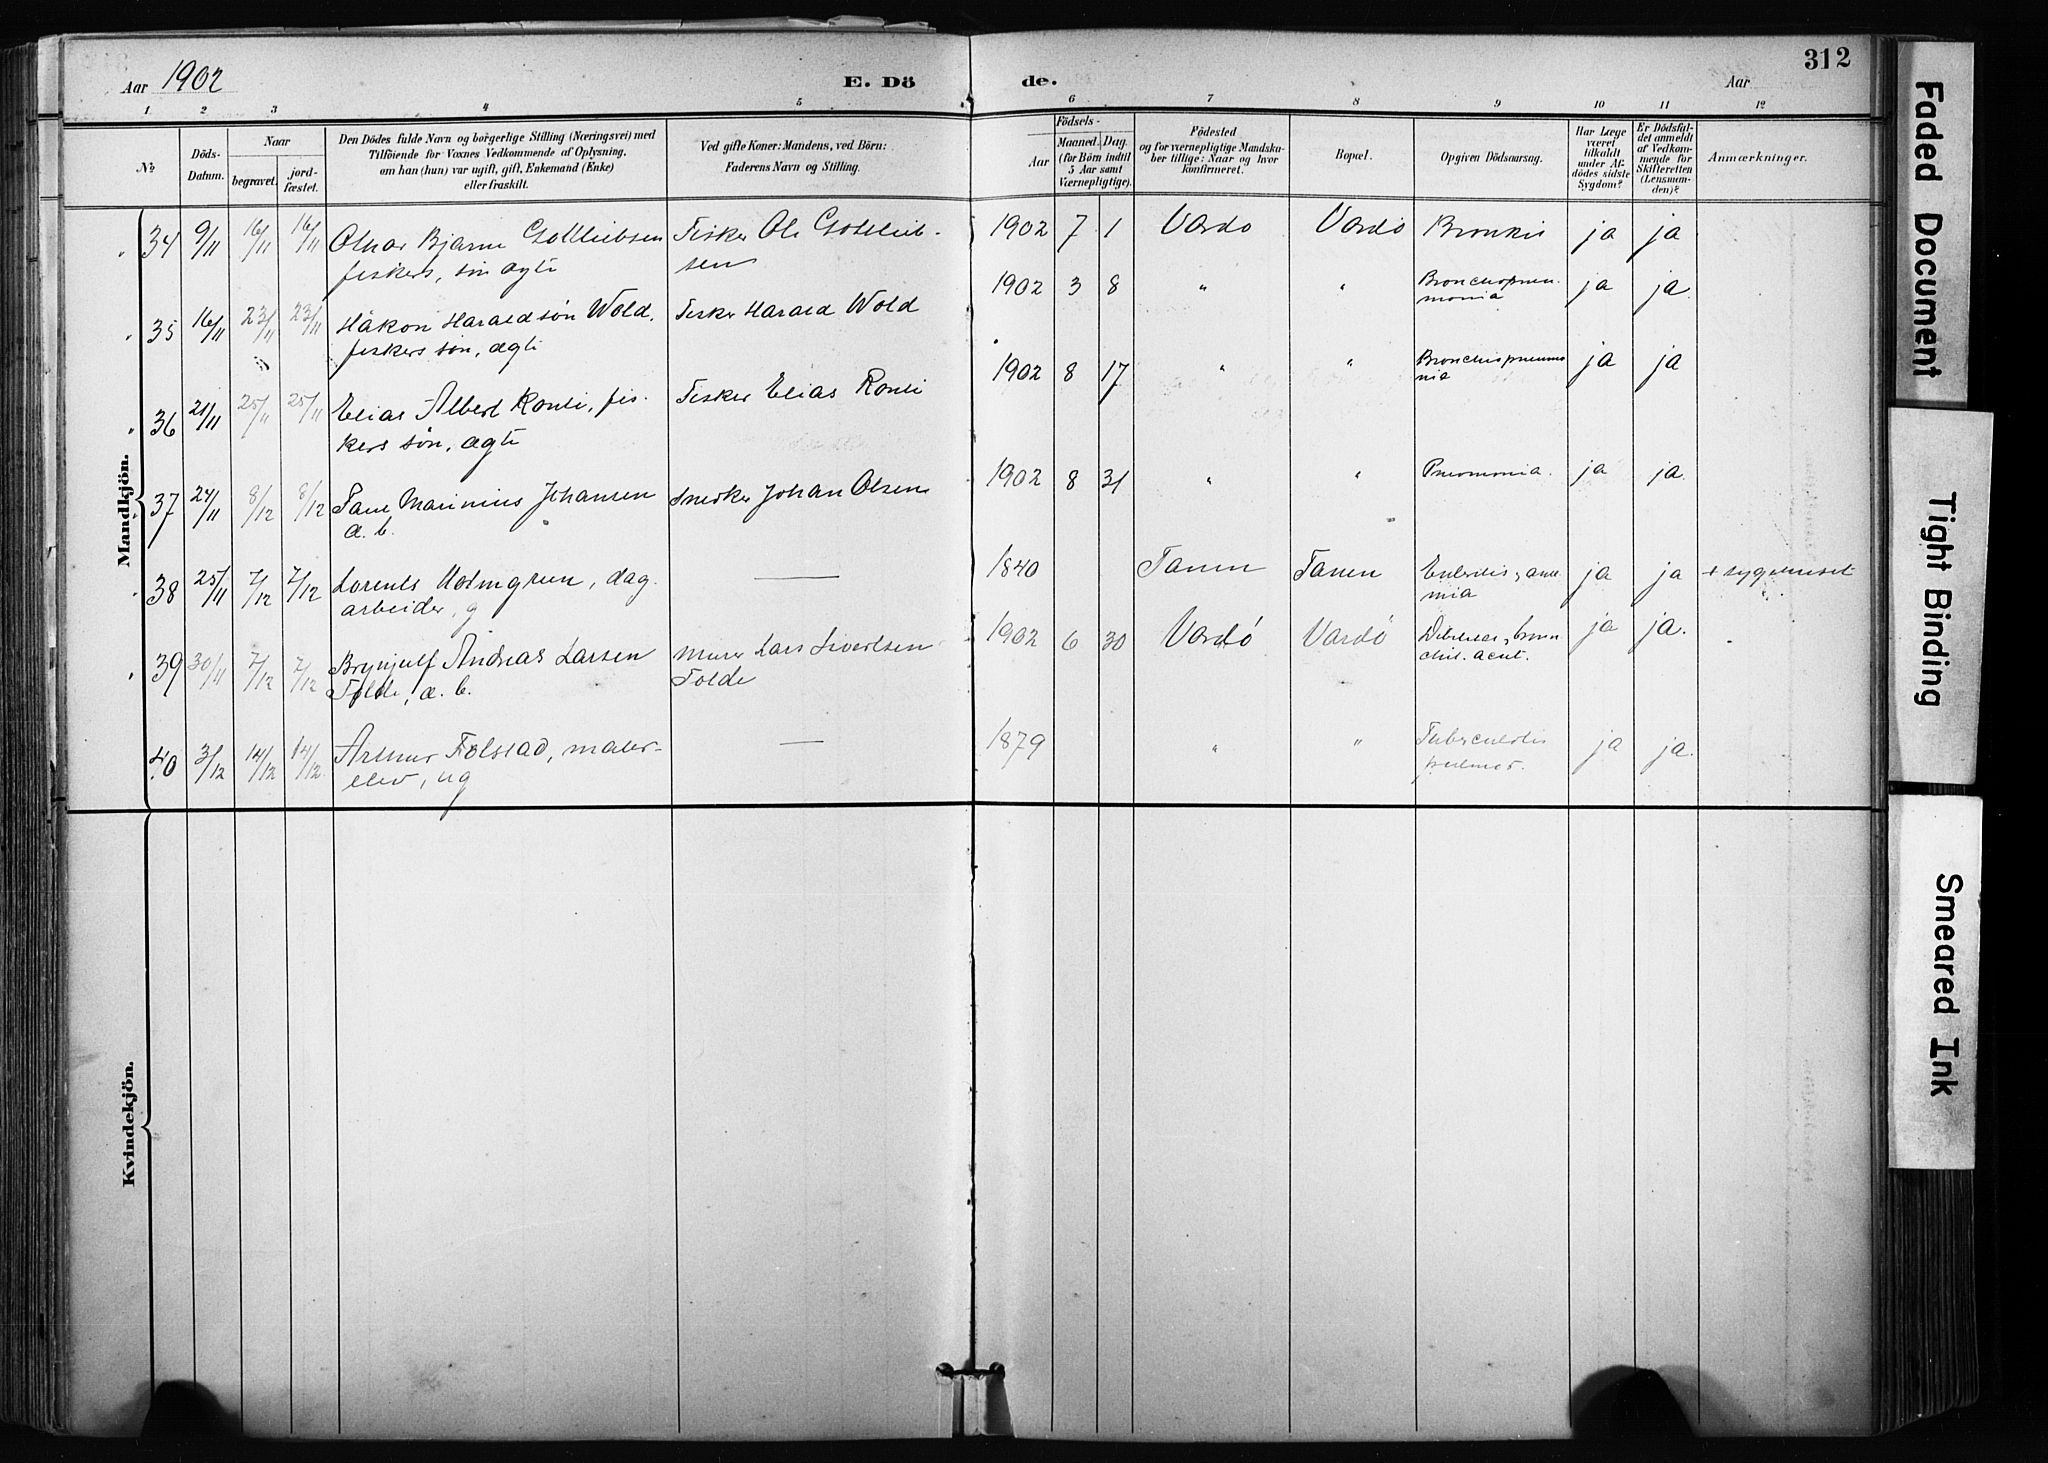 Aar 1902
E. Dö
de.
Aar
312
1 2 3 4 5 6 7 8 9 10 11 12
No
Döds-
Datum.
Naar
begravet.
jord-
fæstet.
Den Dödes fulde Navn og borgerlige Stilling (Næringsvei) med
Tilföiende for Voxnes Vedkommende af Oplysning.
om han (hun) var ugift, gift, Enkemand (Enke)
eller fraskilt.
Ved gifte Koner: Mandens, ved Börn:
Faderens Navn og Stilling.
Födsels-
Aar
Maaned.
Dag.
(for Börn indtil
5 Aar samt
Værnepligtige).
Födested
og for værnepligtige Mandska-
ber tillige: Naar og hvor
konfirmeret.
Bopæl.
Opgiven Dödsaarsag.
Har Læge
været
tilkaldt
under Af-
dödes sidste
Sygdom?
Er Dödsful-
det anmeldt
af Vedkom-
mende for
Skifteretten
(Lensman-
den)?
Anmærkninger.
Mandkjön.
34 9/11 16/11 16/11 Bjarne Gottliebsen Fisker Ole Gottlieb- 1902 7 1 Vardø Vardø Bronkit ja ja
fiskers søn ægte sen
35 16/11 23/11 23/11 Håkon Haraldsøn Wold, Fisker Harald Wold 1902 3 8 " " Bronchopneu-
monia ja ja.
fiskers søn, ægte
36 21/11 25/11 25/11 Elias Albert Konli, fis- Fisker Elias Konli 1902 8 17 " " Bronchopneumo
nia ja ja
kers søn, ægte
37 24/11 8/12 8/12 Marinius Johansen Snedker Johan Olsen 1902 8 31 " " Pneumonia. ja ja.
æ. b.
38 25/11 7/12 7/12 Lorents Holmgreen, dag- — 1840 Tanen Tanen Enteritis, anæ-
mia ja ja + sygehuset
arbeider, g
39 30/11 7/12 7/12 Brynjulf Andreas Larsen Murer Lars Sivertsen 1902 6 30 Vardø Vardø bron
chit. acut. ja ja.
Tolde, æ. b. Tolde
40 3/12 14/12 14/12 Arthur Folstad, maler- — 1879 " " Tuberculosis
pulmon. ja ja.
elev, ug
Kvindekjön.
Faded Document
Tight Binding
Smeared Ink